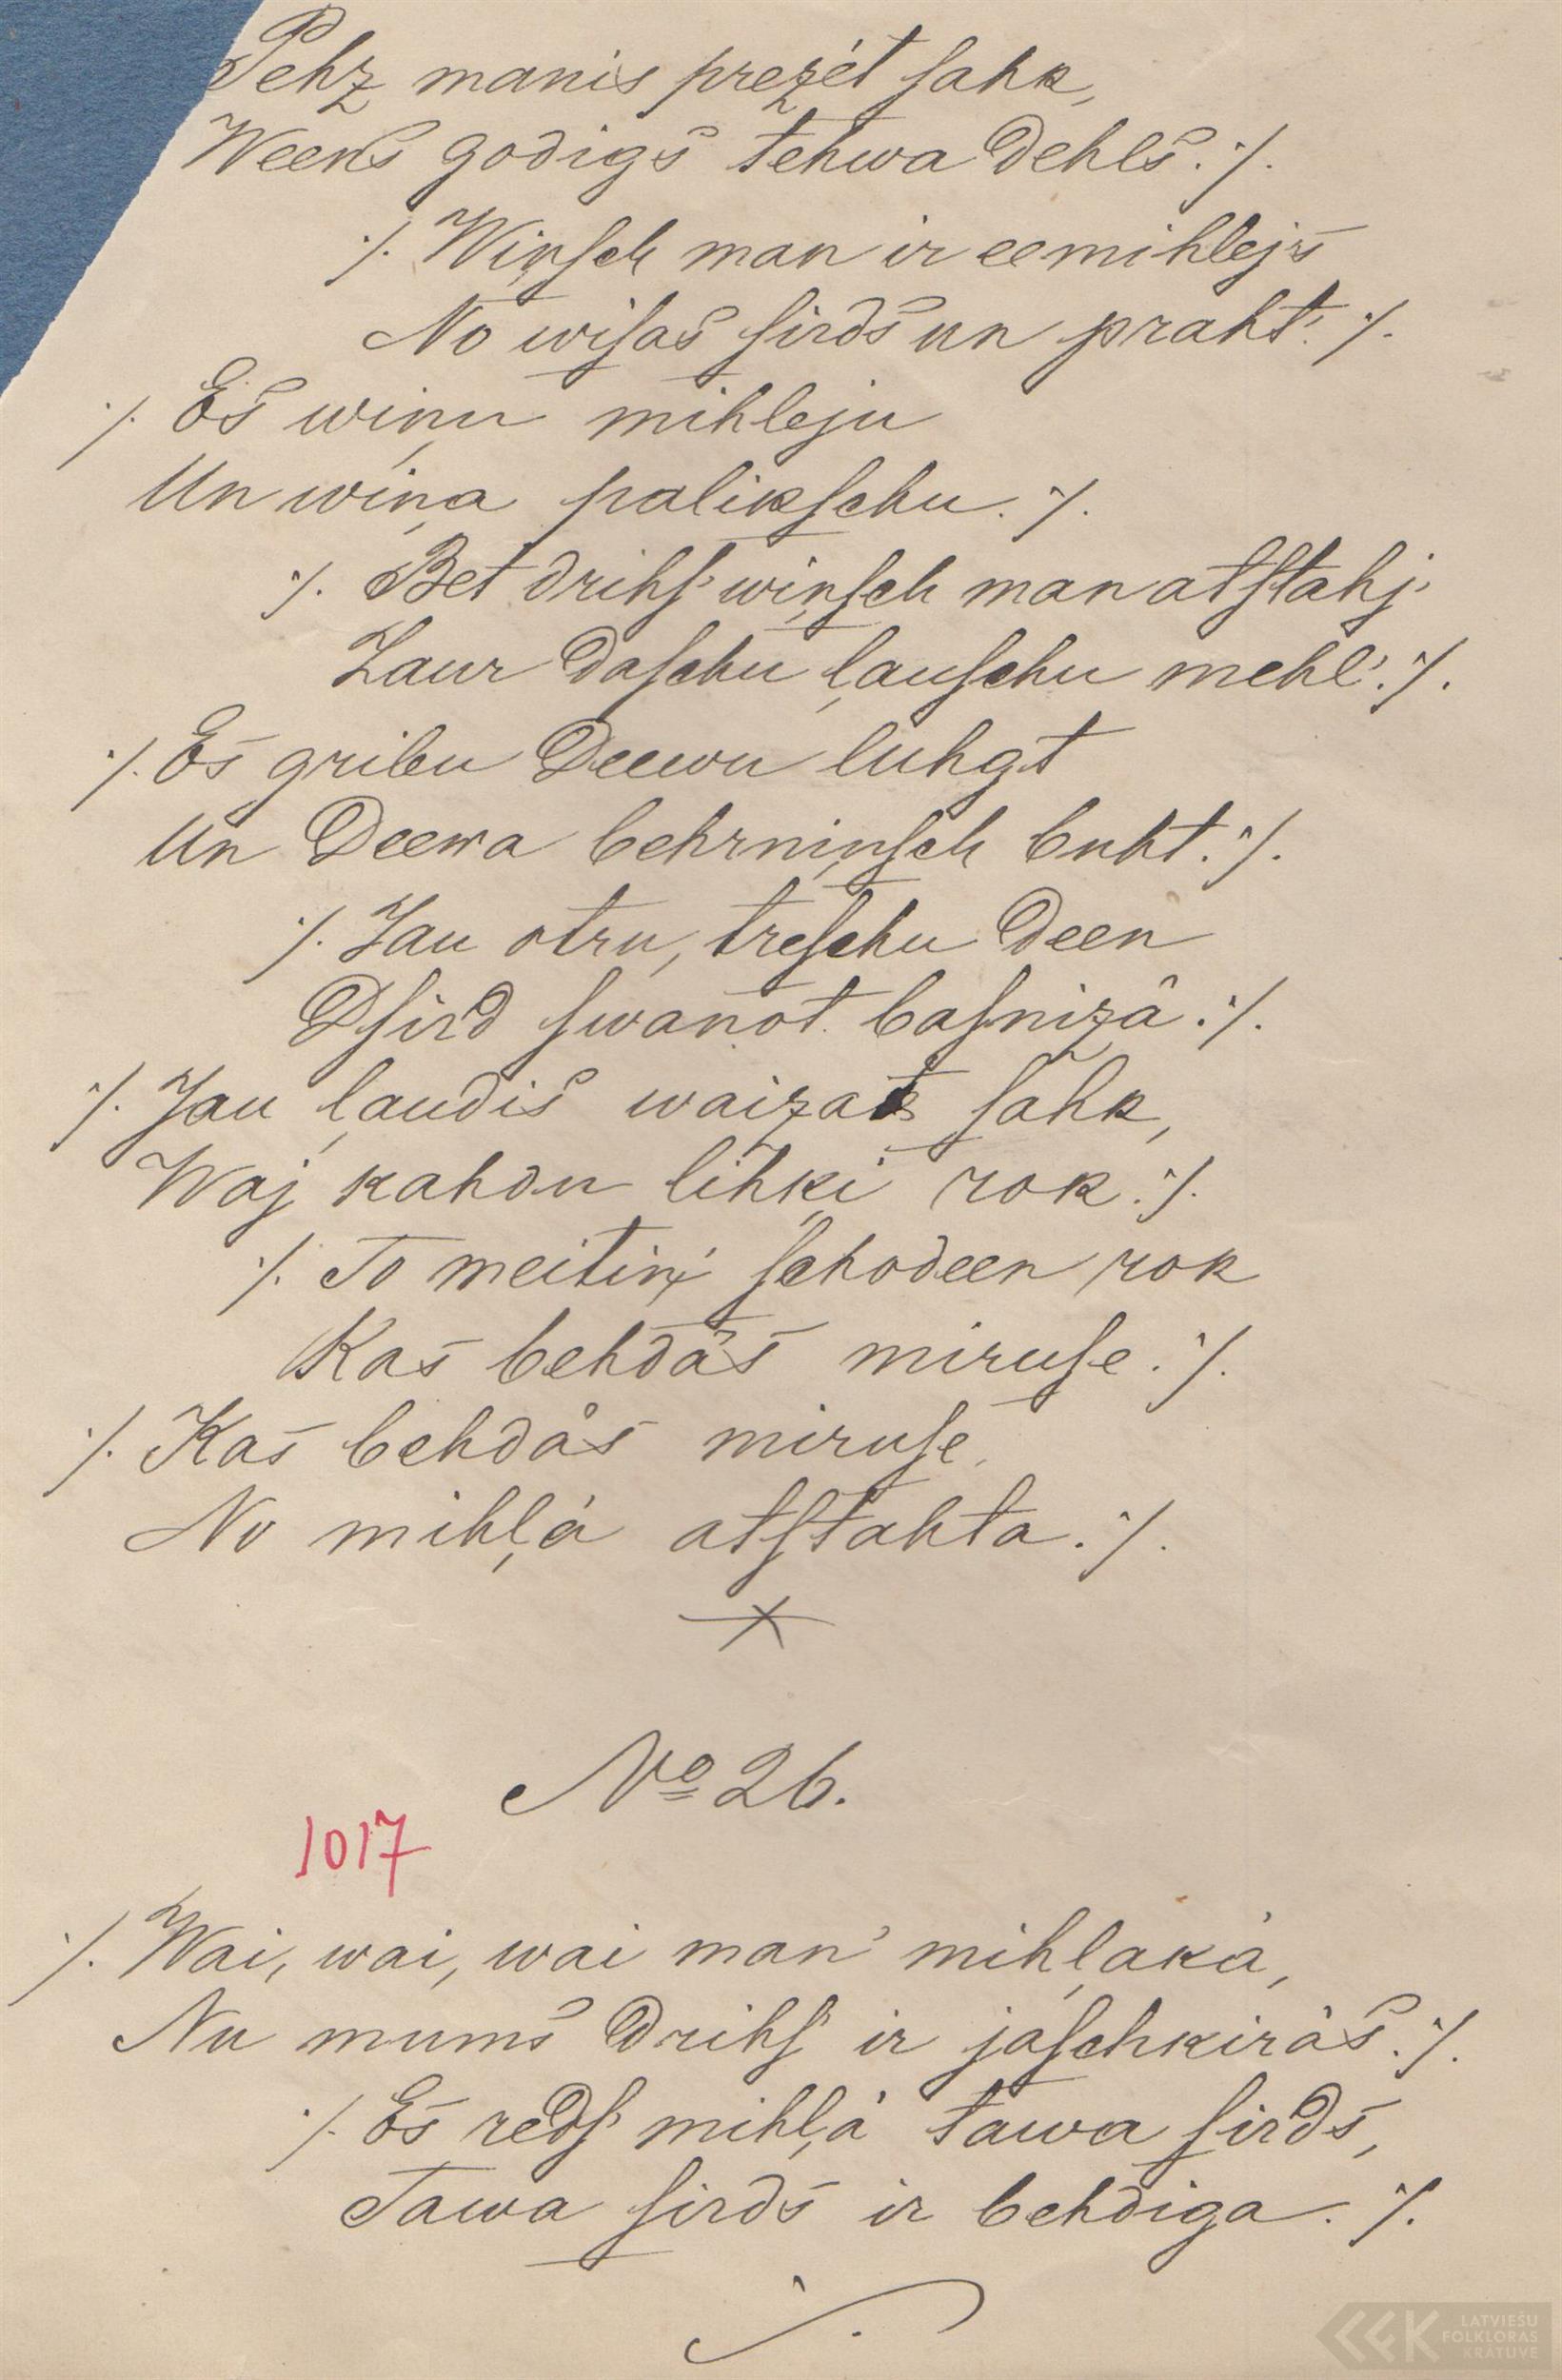 Pehz manis prezét ſahk,
Weens godigs tehwa dehls. ·/.
·/. Wiņſch man ir eemihlejs
No wiſas ſirds un praht'. ·/.
·/. Es wiņu mihleju
Un wiņa palikſchu. ·/.
·/. Bet drihſ' wiņſch man atſtahj'
Zaur daſchu ļauſchu mehl'. ·/.
·/. Es gribu Deewu luhgt
Un Deewa behrniņſch buht. ·/.
·/. Jau otru, treſchu deen
Dſird ſwanot baſnizâ. ·/.
·/. Jau ļaudis waizat ſahk,
Waj kahdu lihķi rok. ·/.
·/. To meitiņ' ſchodeen rok
Kas behdâs miruſe. ·/.
·/. Kas behdâs miruſe,
No mihļá atſtahta. ·/.
№ 26.
1017
·/. Wai, wai, wai man' mihļaká,
Nu mums drihſ' ir jaſchkirâs. ·/.
·/. Es redſ' mihļá tawa ſirds,
Tawa ſirds ir behdiga. ·/.
·/.
LATVIEŠU
FOLKLORAS
KRĀTUVE